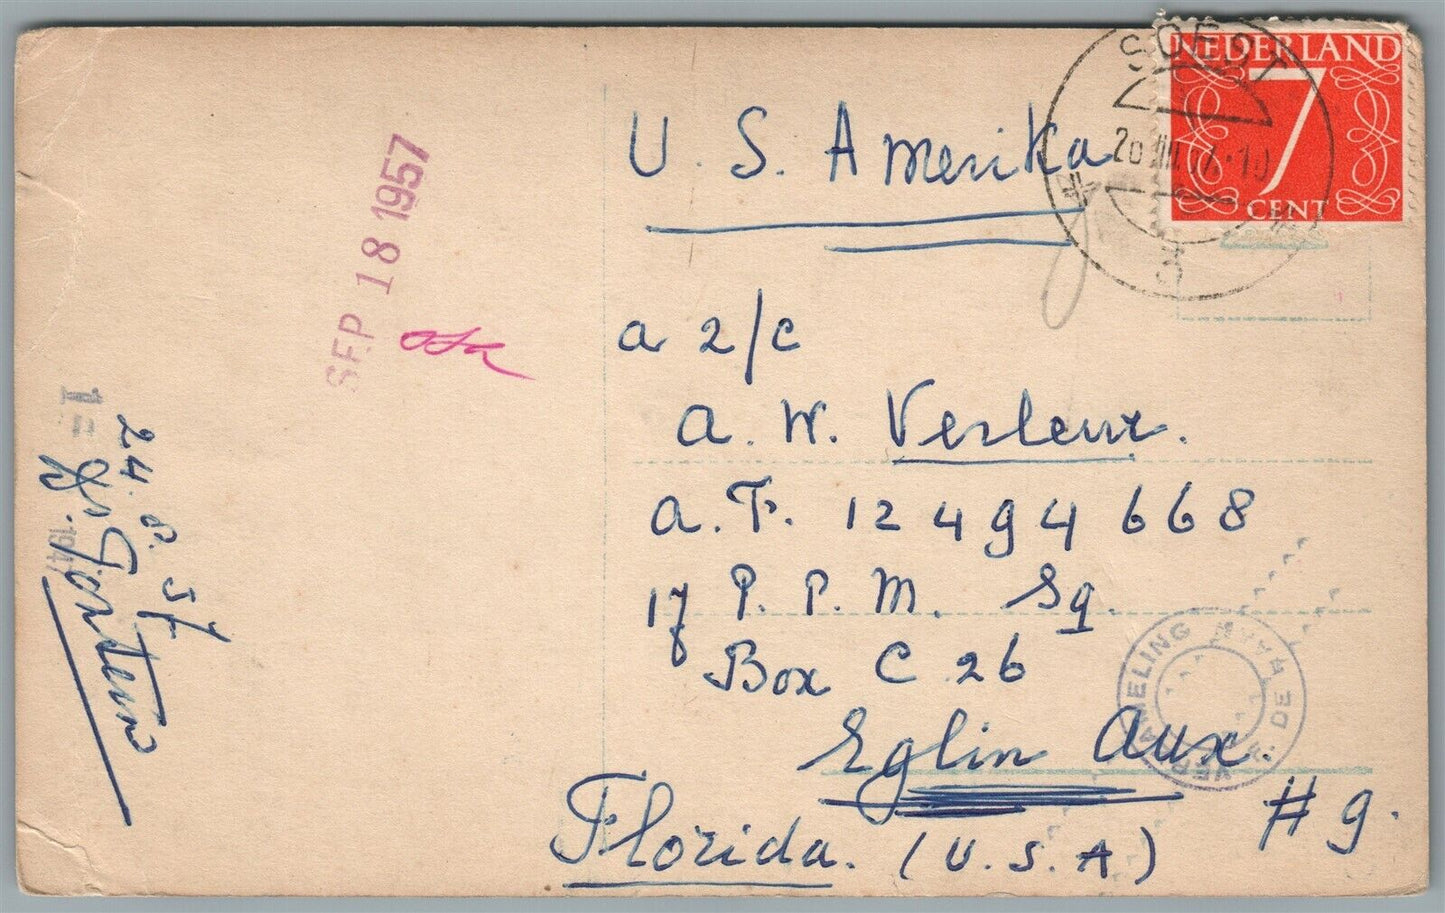 NEDERLAND
7
CENT
SOEST
U. S. Amerika
SEP 18 1957
a 2/c
a. W. Verleur.
a. F. 12 494 668
17 P. P. M. Sq.
Box C 26
Eglin Aux.
# 9.
Florida. (U. S. A)
1=
24. 8. 57
VERZAMELING
DE